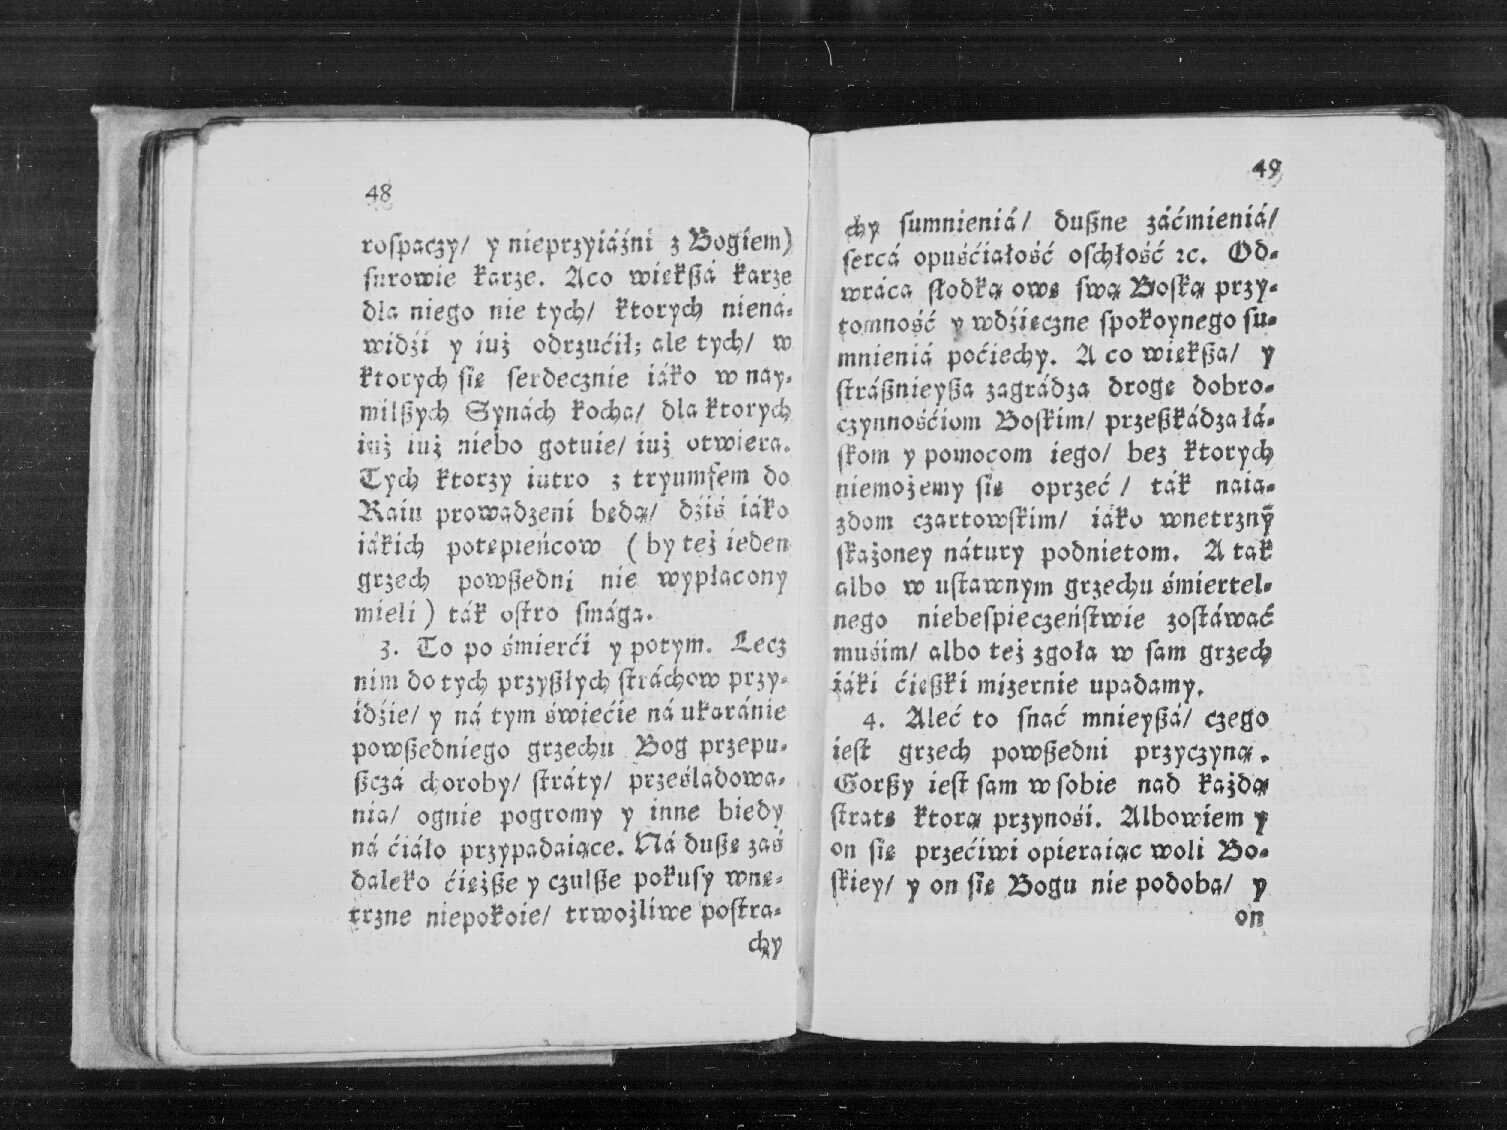 48
rospaczy/ y nieprzyiáźni z Bogiem)
surowie karze. Aco większá karze
dla niego nie tych/ ktorych niená-
widźi y iuż odrzućił; ale tych/ w
ktorych się serdecznie iáko w nay-
milszych Synách kocha/ dla ktorych
iuż iuż niebo gotuie/ iuż otwiera.
Tych ktorzy iutro z tryumfem do
Raiu prowadzeni będą/ dźiś iáko
iákich potępieńcow (by też ieden
grzech powszedni nie wypłacony
mieli) ták ostro smága.
3. To po śmierći y potym. Lecz
nim do tych przyszłych stráchow przy-
idźie/ y ná tym świećie ná ukaránie
powszedniego grzechu Bog przepu-
szczá choroby/ stráty/ prześladowa-
nia/ ognie pogromy y inne biedy
ná ćiáło przypadaiące. Ná duszę zaś
daleko ćięższe y czulsze pokusy wnę-
trzne niepokoie/ trwożliwe postra-
chy
49
chy sumnieniá/ duszne záćmieniá/
sercá opuśćiałość oschłość ꝛc. Od-
wráca słodką owę swą Boską przy-
tomność y wdźięczne spokoynego su-
mnieniá poćiechy. A co większa/ y
strásznieysza zagrádza drogę dobro-
czynnośćiom Boskim/ przeszkádza łá-
skom y pomocom iego/ bez ktorych
niemożemy się oprzeć/ ták naia-
zdom czartowskim/ iáko wnetrzny̅
skażoney nátury podnietom. A tak
albo w ustawnym grzechu śmiertel-
nego niebespieczeństwie zostáwać
muśim/ albo też zgoła w sam grzech
iáki ćięszki mizernie upadamy.
4. Aleć to snać mnieyszá/ czego
iest grzech powszedni przyczyną.
Gorszy iest sam w sobie nad każdą
stratę ktorą przynośi. Albowiem y
on się przećiwi opieraiąc woli Bo-
skiey/ y on się Bogu nie podoba/ y
on